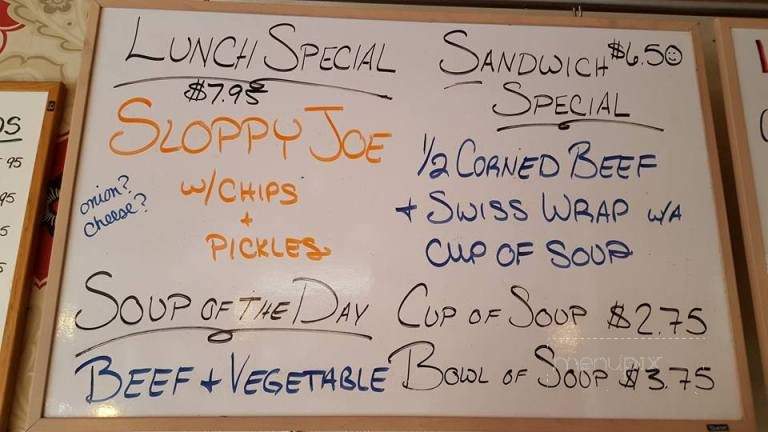 LUNCH SPECIAL
$7.95
SLOPPY JOE
W/CHIPS
+
PICKLES
onion?
cheese?
SANDWICH $6.50
SPECIAL
1/2 CORNED BEEF
+ SWISS WRAP W/A
CUP OF SOUP
SOUP OF THE DAY
BEEF + VEGETABLE
CUP OF SOUP $2.75
BOWL OF SOUP $3.75
menupix
95
95